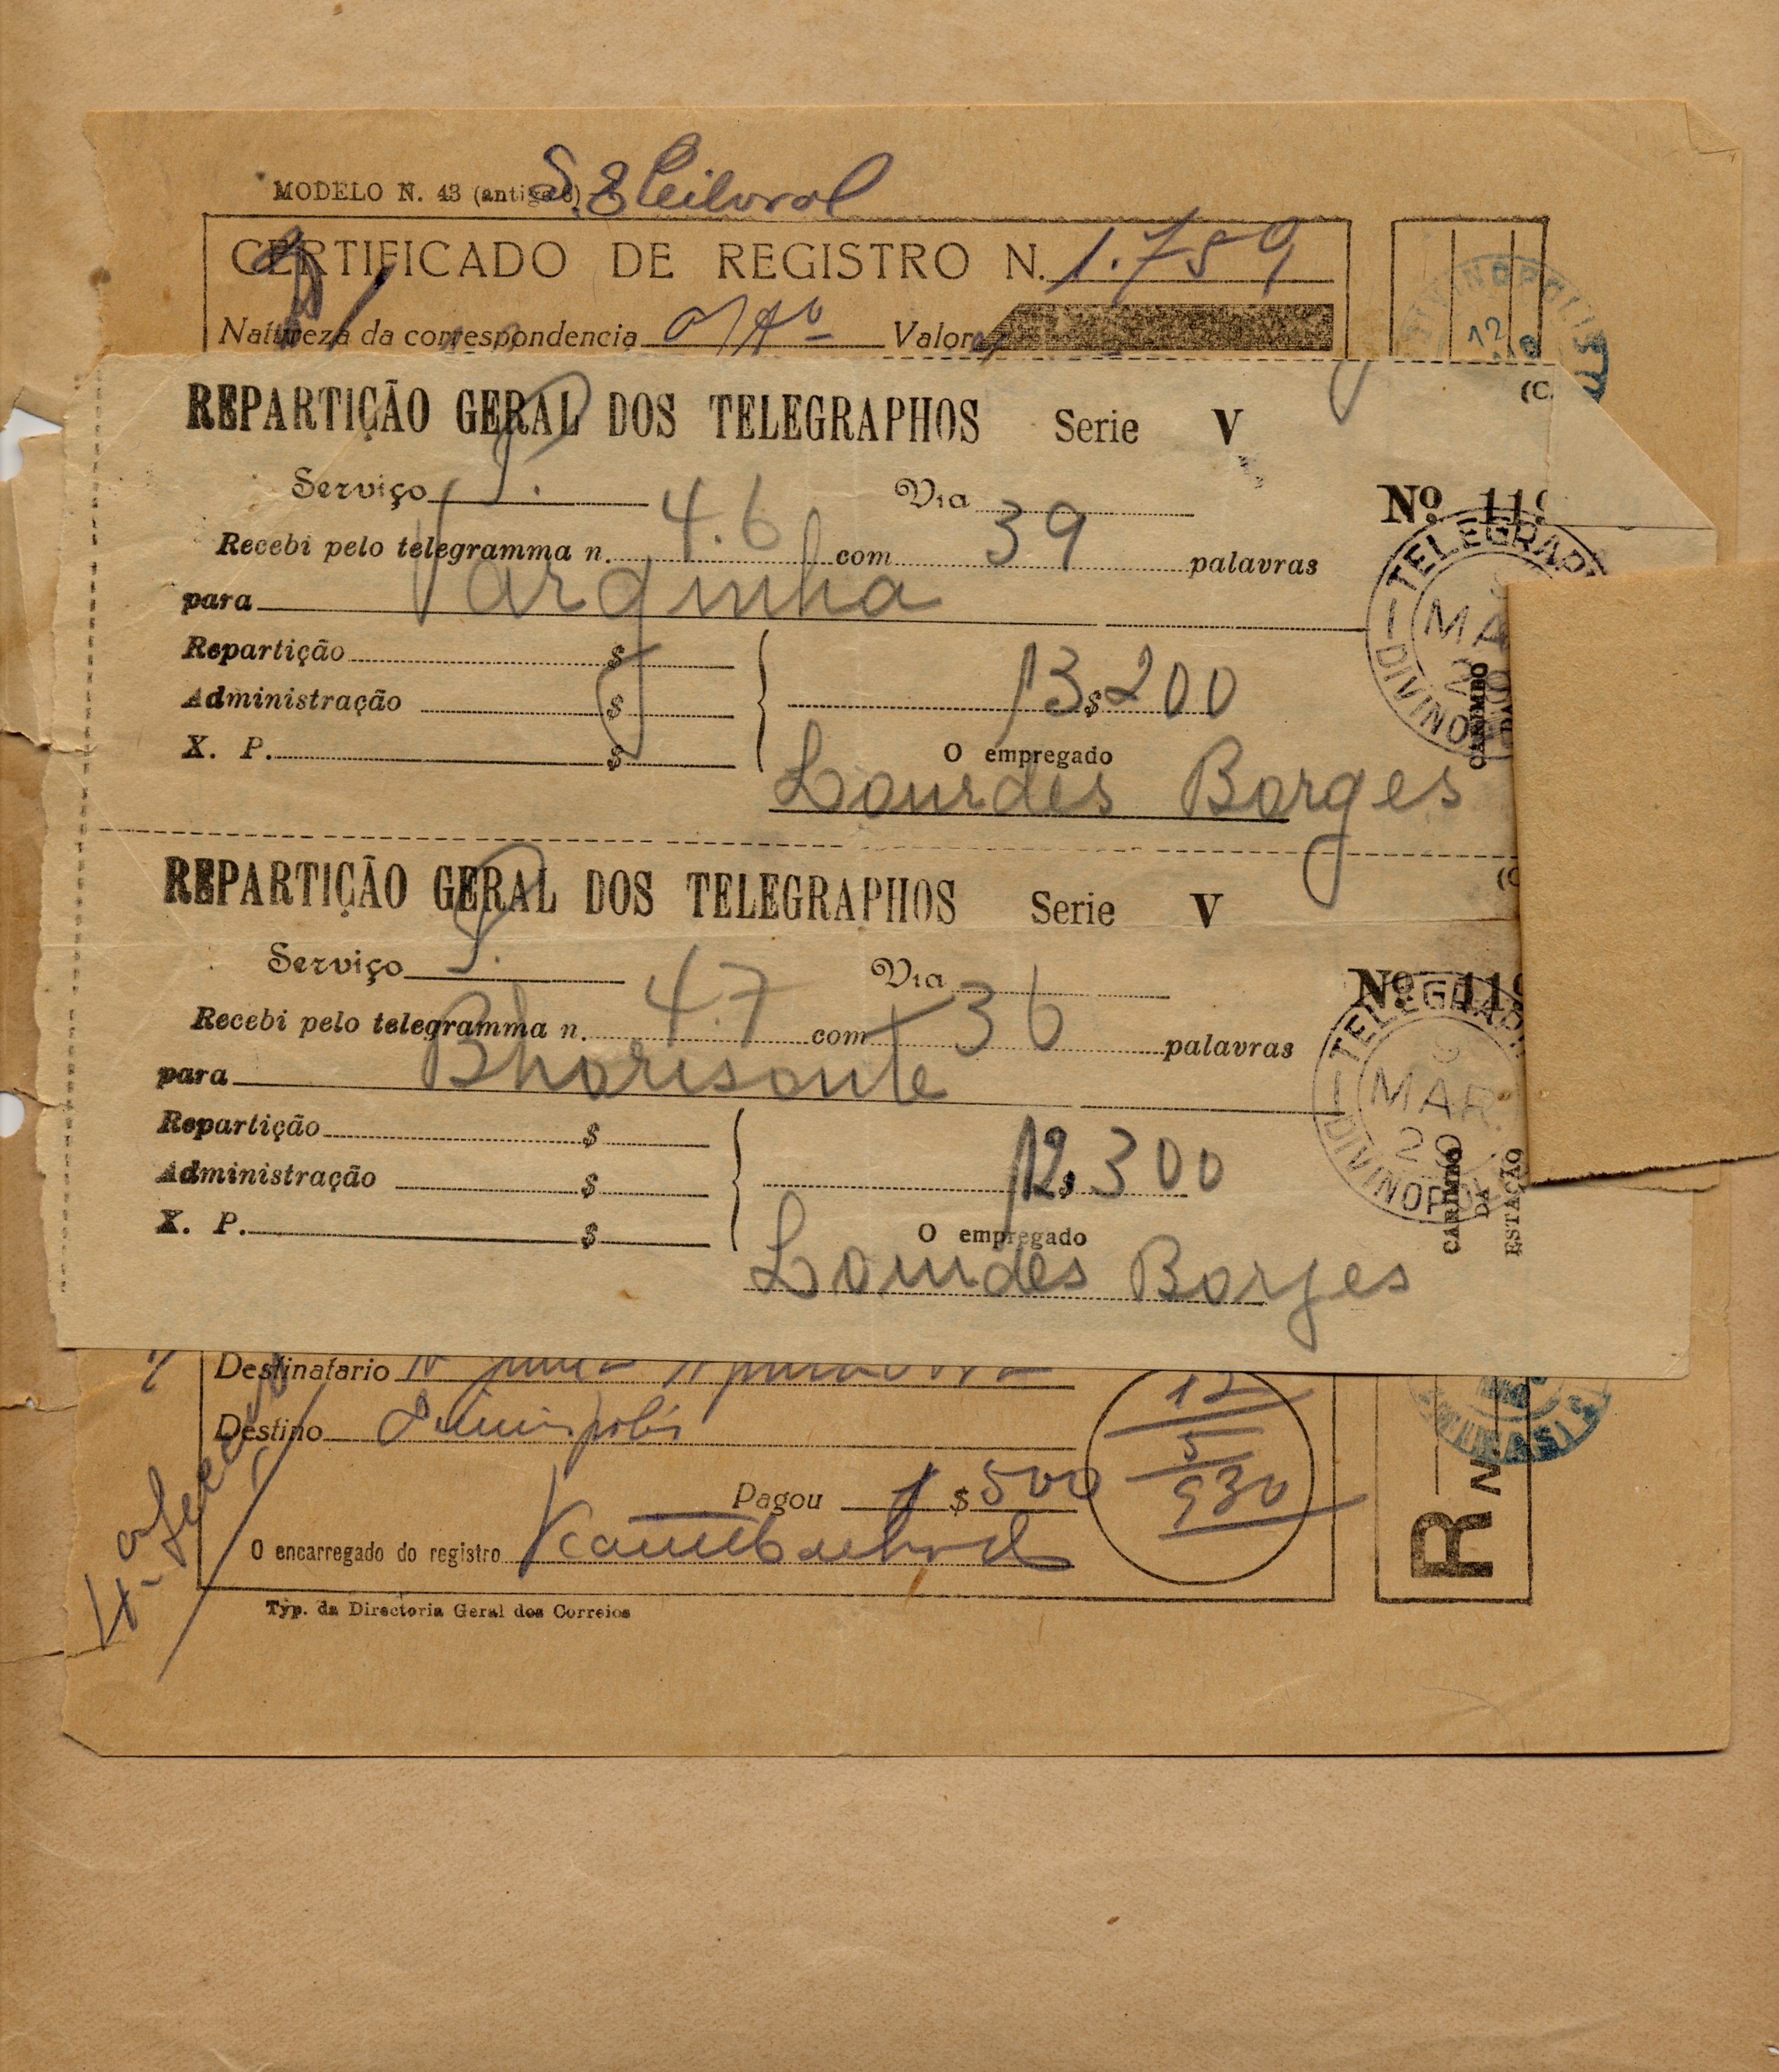 S. Eleitoral
MODELO N. 43 (antigo 6)
CERTIFICADO DE REGISTRO N. 1.759
Natureza da correspondencia Valor
DIVINOPOLIS
12
REPARTIÇÃO GERAL DOS TELEGRAPHOS Serie V
(C
Serviço P. Via
Nº 119
Recebi pelo telegramma n. 46 com 39 palavras
para Varginha
Repartição $
Administração $
13$200
X. P. $
O empregado
Lourdes Borges
TELEGRAP
MA
DIVINO
CARIMBO
DA
REPARTIÇÃO GERAL DOS TELEGRAPHOS Serie V
(C
Serviço P. Via
Nº 119
Recebi pelo telegramma n. 47 com 36 palavras
para Bhorisonte
Repartição $
Administração $
12$300
X. P. $
O empregado
Lourdes Borges
TELEGRAP
MAR.
DIVINOPOLIS
CARIMBO
DA
ESTAÇÃO
Destinatario
Destino
12
5
930
Pagou 1$500
O encarregado do registro
R N
Typ. da Directoria Geral dos Correios